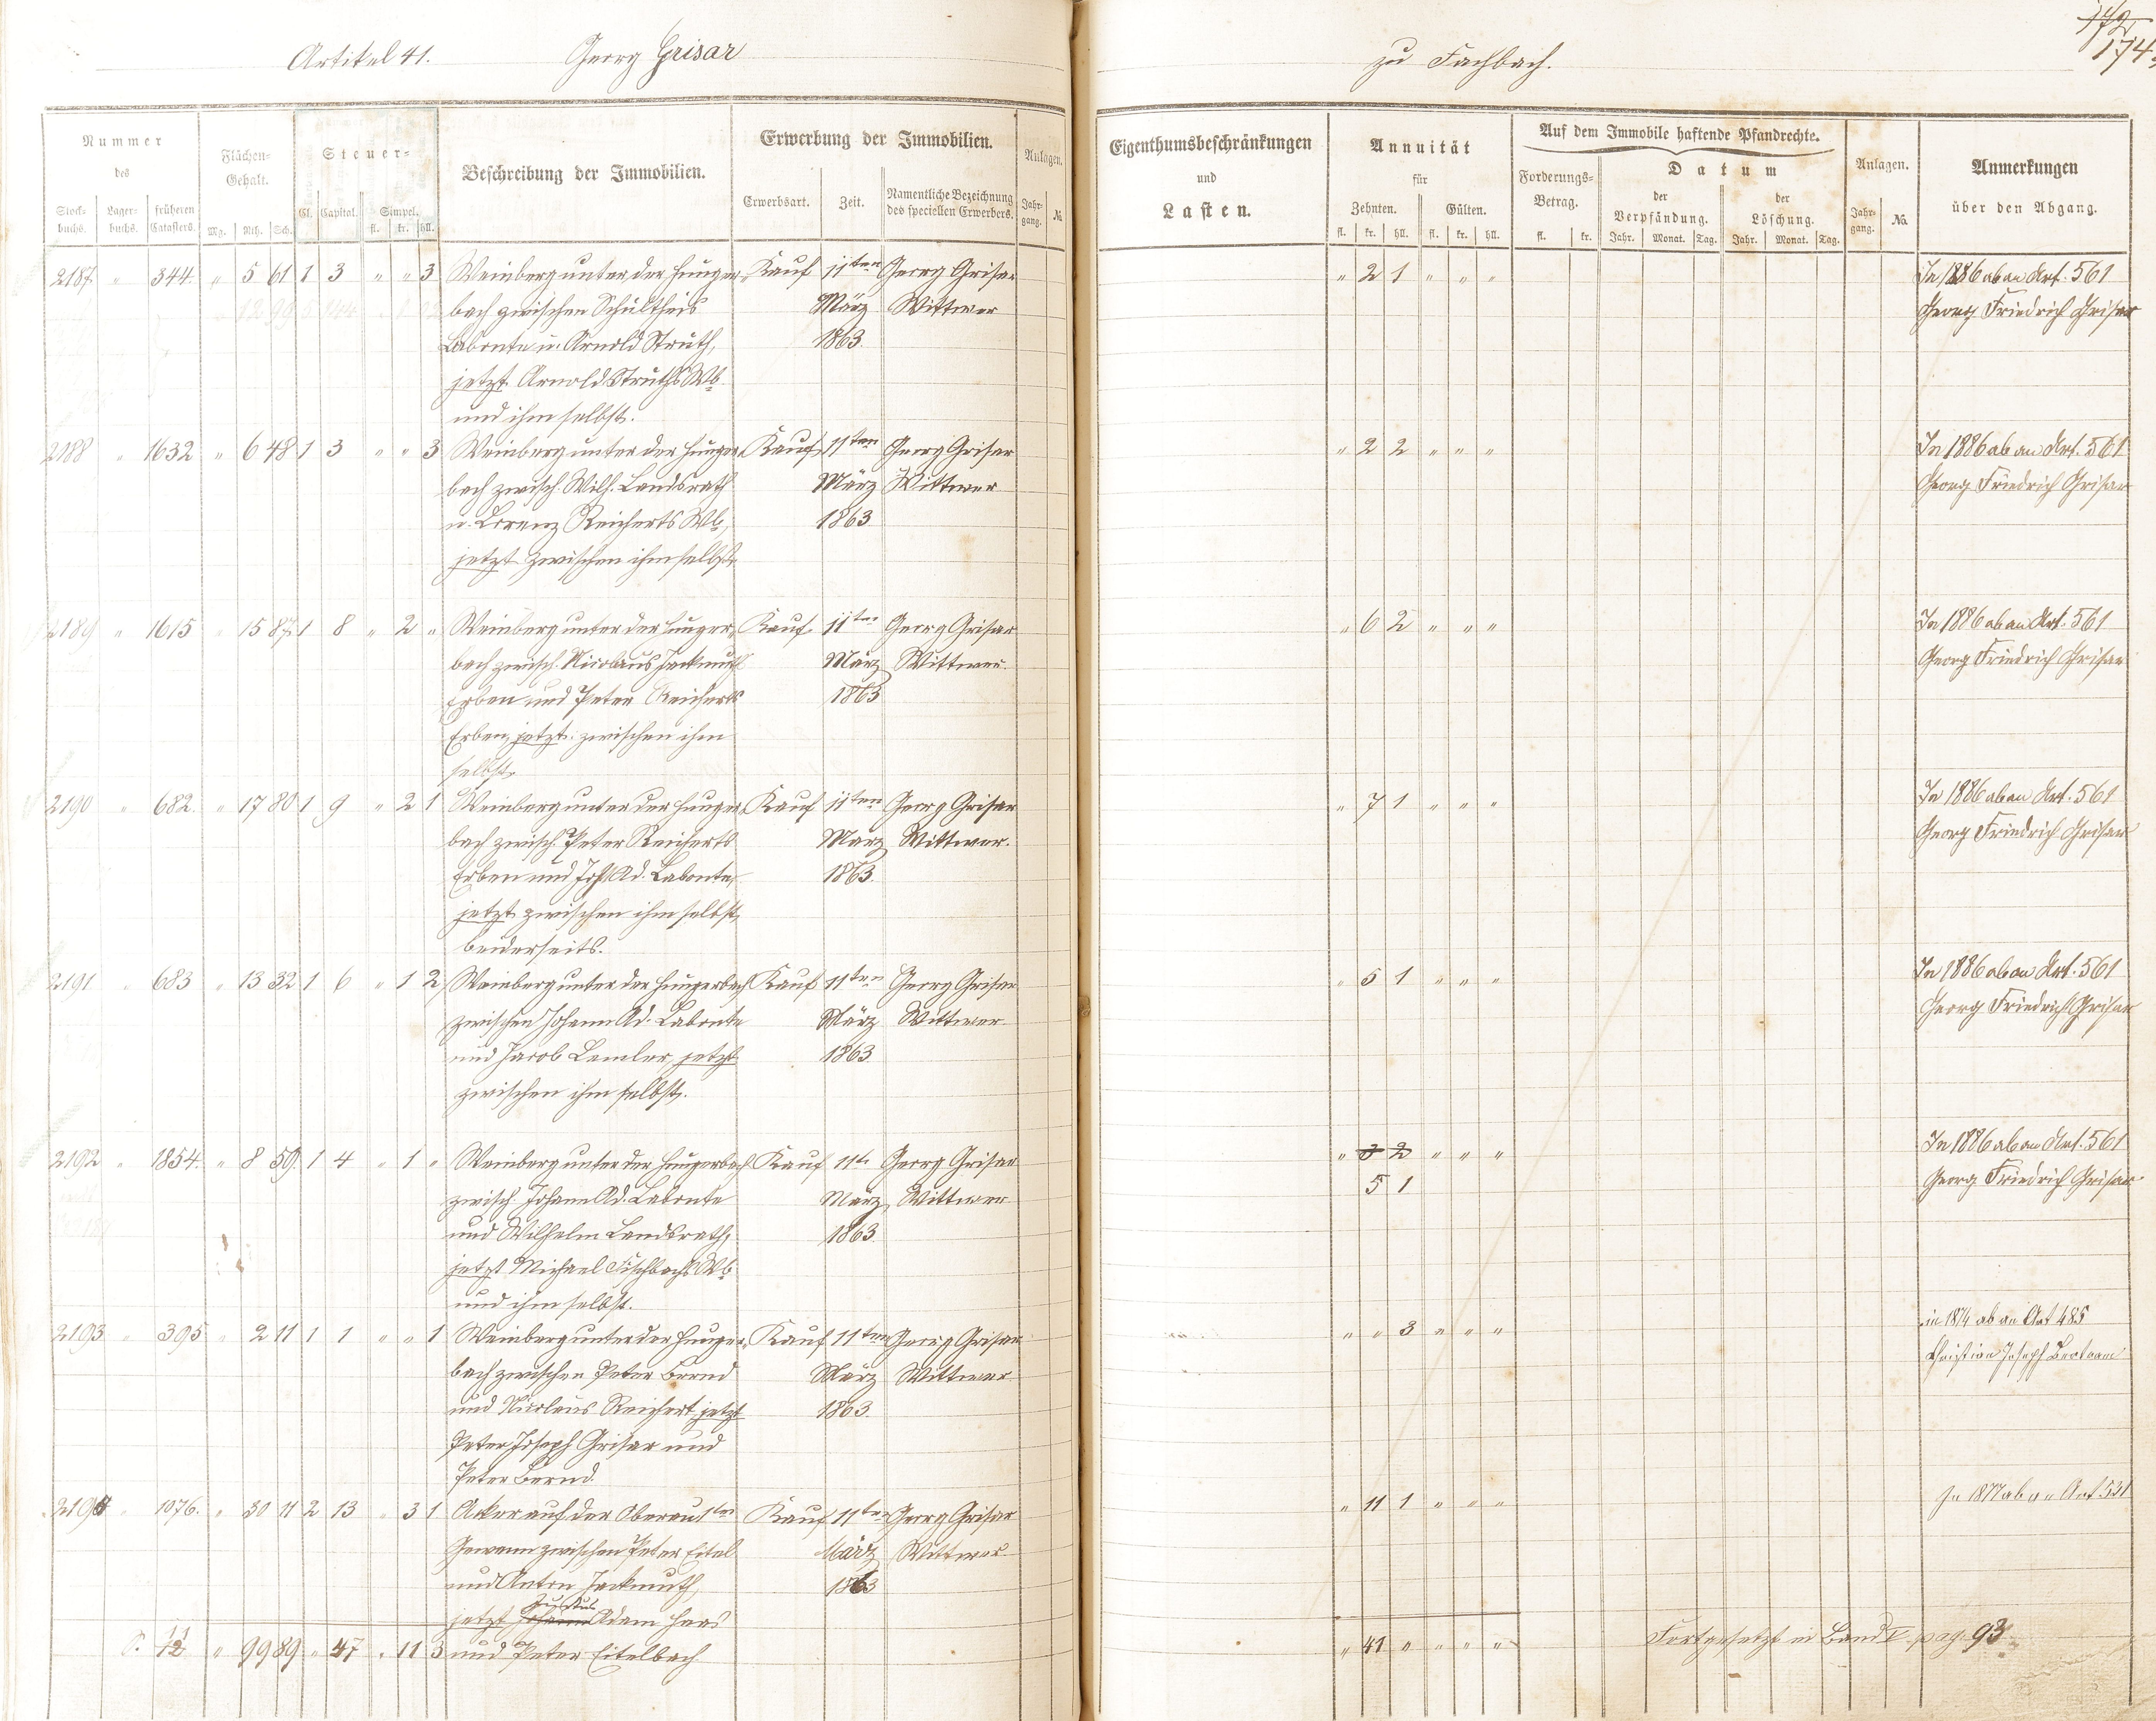 Artikel 41. Georg Grisar
zu Fachbach.
174
Nummer
des
Stock-
buchs.
Lager-
buchs.
früheren
Catasters.
Flächen-
Gehalt.
Mg. Rth. Sch.
Steuer-
Cl. Capital. Simpel.
fl. kr. hll.
Beschreibung der Immobilien.
Erwerbung der Immobilien.
Erwerbsart. Zeit. Namentliche Bezeichnung
des speciellen Erwerbers.
Anlagen.
Jahr-
gang. №
Eigenthumsbeschränkungen
und
Lasten.
Annuität
für
Zehnten. Gülten.
fl. kr. hll. fl. kr. hll.
Auf dem Immobile haftende Pfandrechte.
Forderungs-
Betrag.
fl. kr.
Datum
der
Verpfändung.
Jahr. Monat. Tag.
der
Löschung.
Jahr. Monat. Tag.
Anlagen.
Jahr-
gang. No.
Anmerkungen
über den Abgang.
2187 " 344. " 5 61 1 3 " " 3 Weinberg unter der Hunger- Kauf 11ten Georg Grisar " 2 1 " " " In 1886 ab an Art. 561
bach zwischen Schultheis März Wittwer Georg Friedrich Grisar
Labonte u. Arnold Struth, 1863.
jetzt Arnold Struths Wb
und ihm selbst.
2188 " 1632 " 6 48 1 3 " " 3 Weinberg unter der Hunger- Kauf 11ten Georg Grisar " 2 2 " " " In 1886 ab an Art. 561
bach zwisch. Wilh. Landsrath März Wittwer Georg Friedrich Grisar
u. Lorenz Reicherts Wb, 1863
jetzt zwischen ihm selbst.
2189 " 1615 " 15 87 1 8 " 2 " Weinberg unter der Hunger- Kauf 11ten Georg Grisar " 6 2 " " " In 1886 ab an Art. 561
bach zwisch. Nicolaus Jackmuth März Wittwer. Georg Friedrich Grisar
Erben und Peter Reicherts 1863
Erben, jetzt: zwischen ihm
selbst.
2190 " 682. " 17 80 1 9 " 2 1 Weinberg unter der Hunger- Kauf 11ten Georg Grisar " 7 1 " " " In 1886 ab an Art. 561
bach zwisch. Peter Reicherts März Wittwer. Georg Friedrich Grisar
Erben und Joh. Ad. Labonte, 1863.
jetzt zwischen ihm selbst,
beiderseits.
2191 " 683 " 13 32 1 6 " 1 2 Weinberg unter der Hungerbach Kauf 11ten Georg Grisar " 5 1 " " " In 1886 ab an Art. 561
zwischen Johann Ad. Labonte März Wittwer Georg Friedrich Grisar
und Jacob Lemler, jetzt 1863.
zwischen ihm selbst.
2192 " 1854. " 8 59 1 4 " 1 " Weinberg unter der Hungerbach Kauf 11t. Georg Grisar " 3 2 " " " In 1886 ab an Art. 561
zwisch. Johann Ad. Labonte März Wittwer 5 1 Georg Friedrich Grisar
und Wilhelm Landsrath, 1863.
jetzt Michael Fischbachs Wb
und ihm selbst.
2193 " 395 " 2 11 1 1 " " 1 Weinberg unter der Hunger- Kauf 11ten Georg Grisar " " 3 " " " in 1874 ab an Art 485
bach zwischen Peter Bernd März Wittwer Christian Joseph Bertram
und Nicolaus Reichert, jetzt 1863.
Peter Joseph Grisar und
Peter Bernd.
" 1076. " 30 11 2 13 " 3 1 Acker auf der Oberau 1te Kauf 11ten Georg Grisar " 11 1 " " " In 1877 ab an Art 531
Gewann zwischen Peter Eitel März Wittwer
und Anton Jackmuth, 1863
jetzt Johann Justus Adam Haas
S. 11 12 " 99 89 " 47 " 11 3 und Peter Eitelbach " 41 " " " " Fortgesetzt in Band V pag. 93.